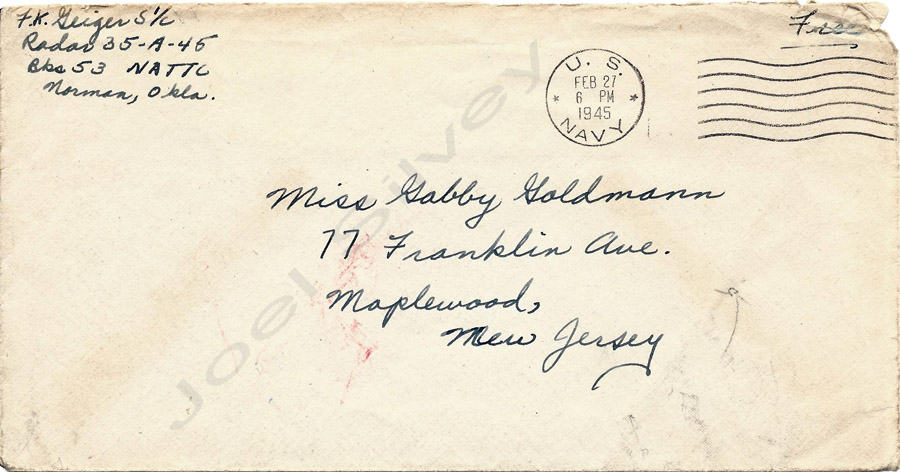 F.K. Geiger S1/c
Radar 35-A-45
Bks 53 NATTC
Norman, Okla.
Free
U. S.
FEB 27
6 PM
1945
NAVY
Miss Gabby Goldmann
77 Franklin Ave.
Maplewood,
New Jersey
Joel Silvey